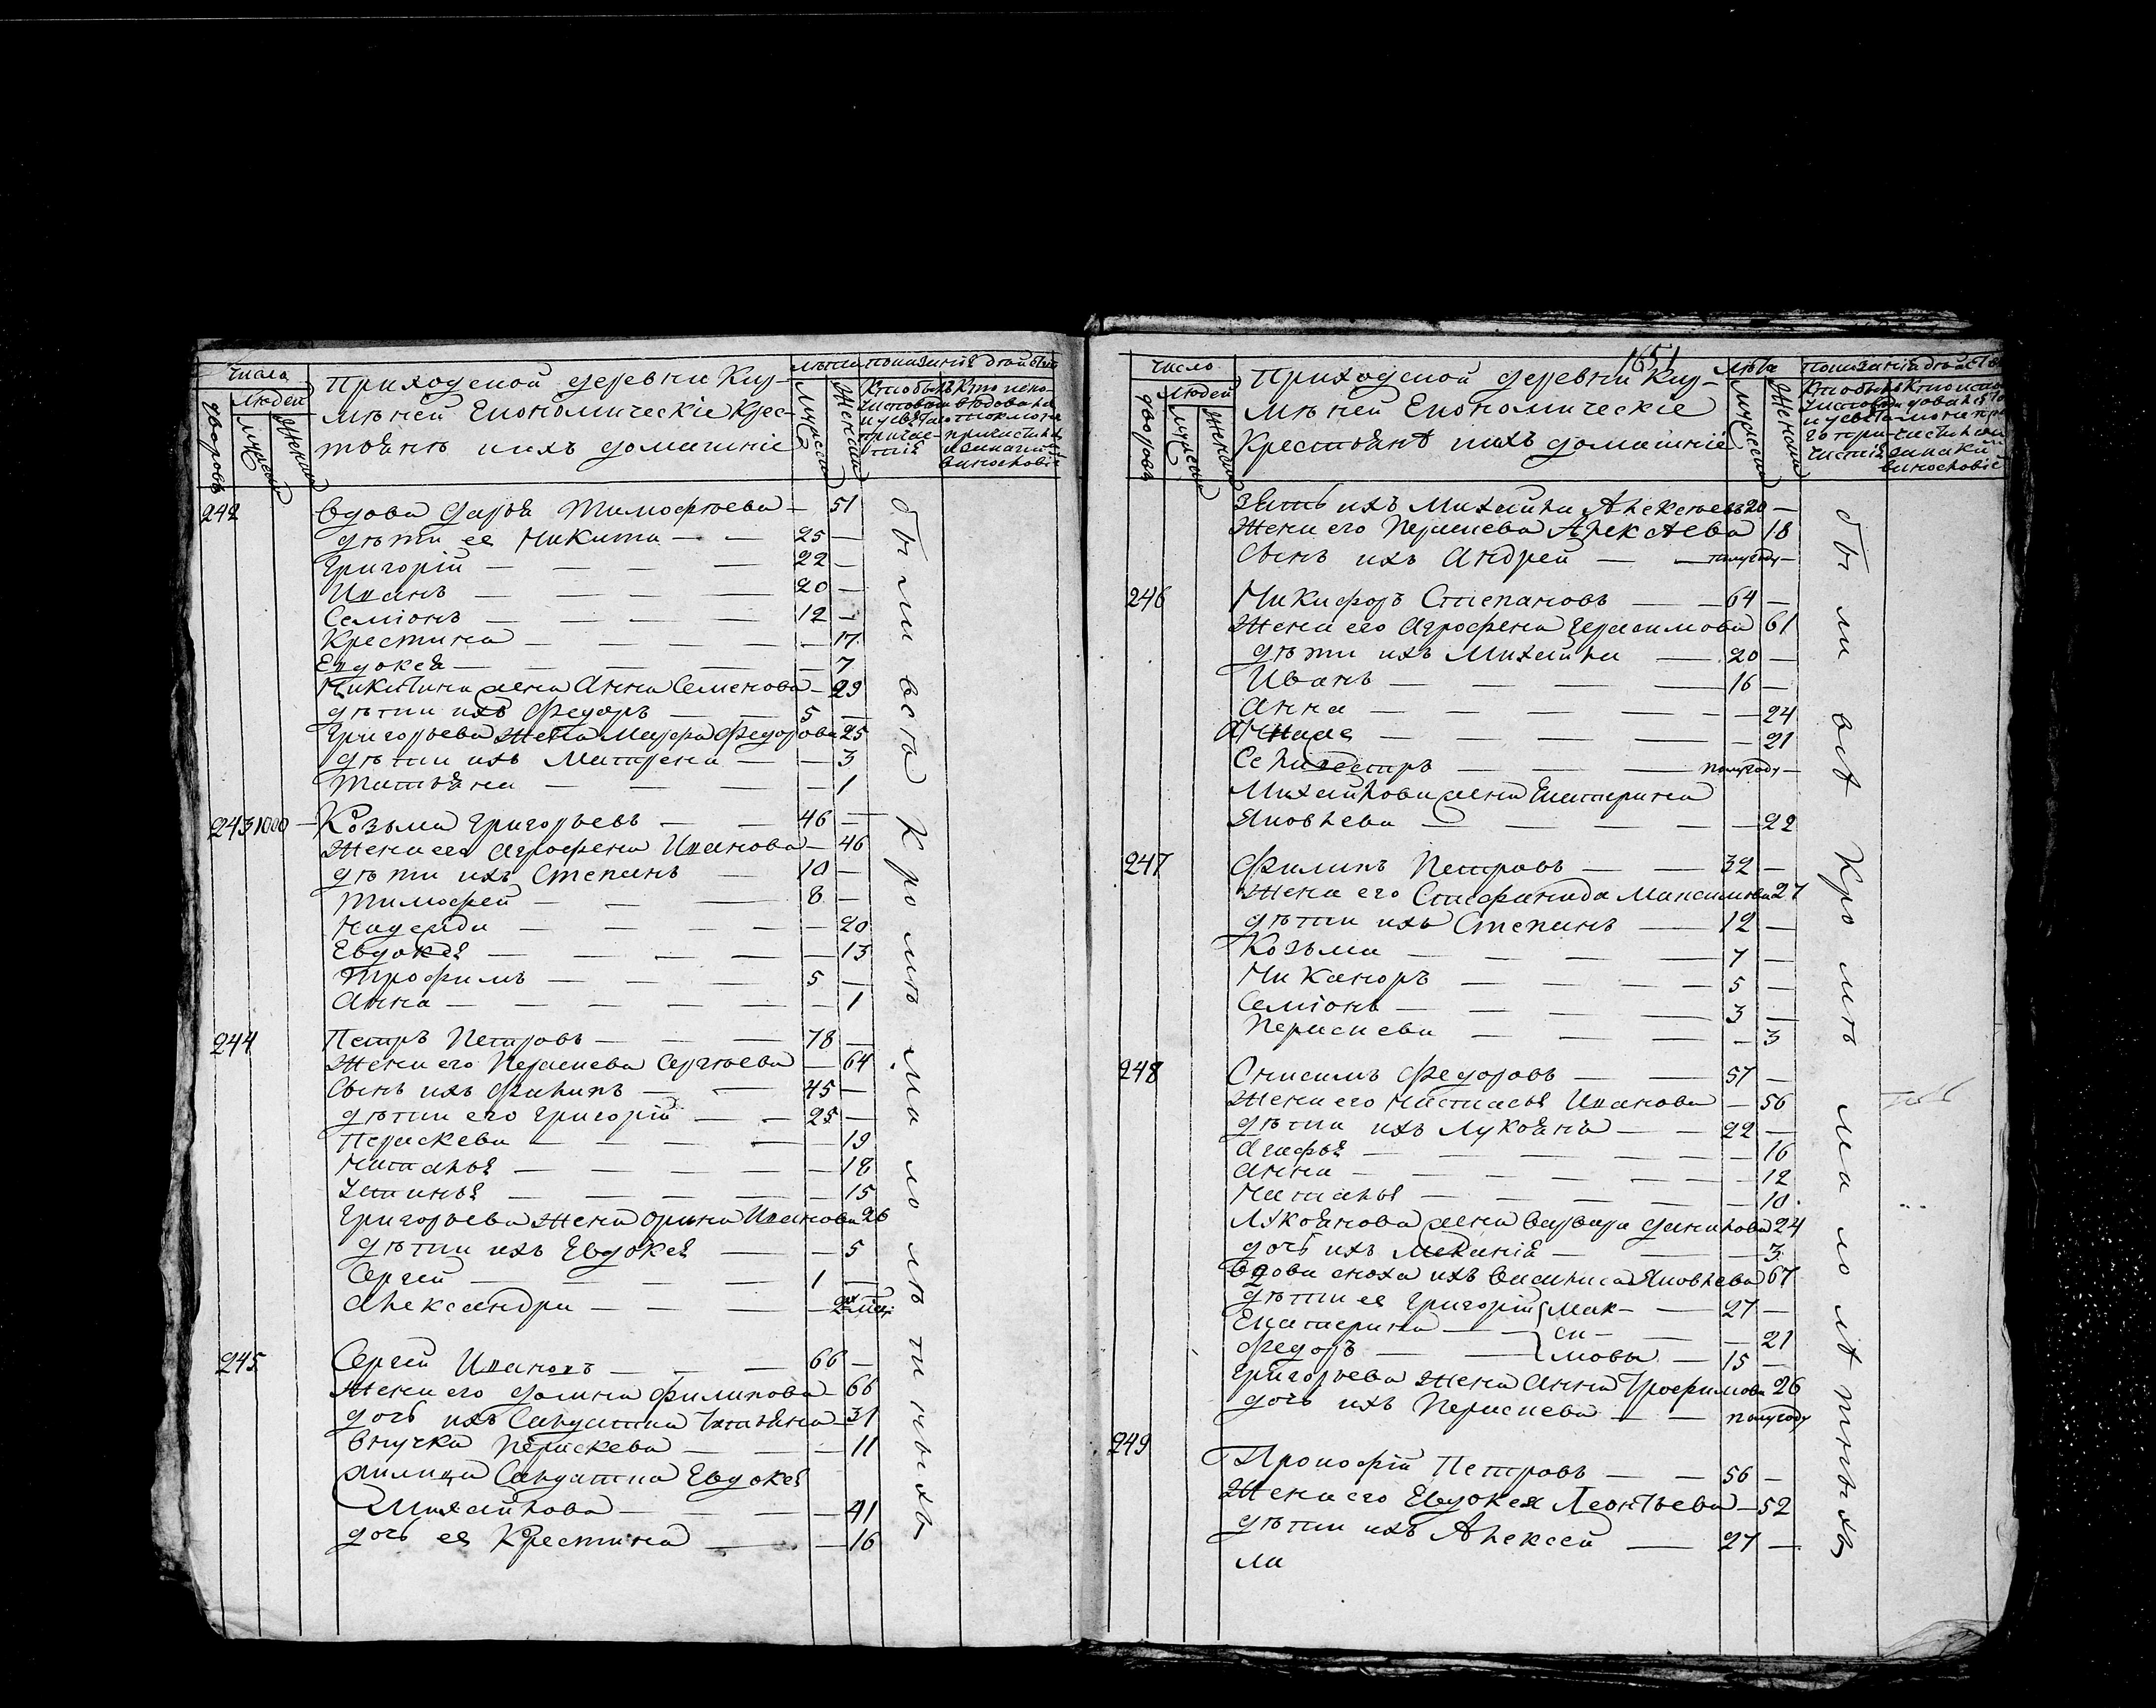 Числа
Людей
дворовъ
мужеск
женск
Приходской деревни Кур-
мѣней Економическіе Крес-
тьянъ ихъ домашніе
лѣта
мужеск
женск
показанія дѣйств
242 Вдова Дарья Тимофѣева — 51
дѣти ее Никита — — 25 —
Григорій — — — — 22 —
Иванъ — — — — 20 —
Семіонъ — — — — 12 —
Крестина — — — — — 17
Евдокея — — — — — 7
Никитина жена Анна Семенова — 29
дѣти ихъ Федоръ — — 5 —
Григорьева жена Марфа Федорова 25
дѣти ихъ Матрена — — 3
Татьяна — — — — 1
243 1000 — Козьма Григорьевъ — — 46 —
Жена его Агрофена Иванова — 46
дѣти ихъ Степанъ — 10 —
Тимофей — — — 8 —
Надежда — — — — — 20
Евдокея — — — — — 13
Трофимъ — — — 5 —
Анна — — — — — — 1
244 Петръ Петровъ — — — 78 —
Жена его Перасиева Сергѣева — 64
Сынъ ихъ Филипъ — — 45 —
дѣти его Григорій — — 25 —
Пераскева — — — — — 19
Наталья — — — — — 18
Устинья — — — — — 15
Григорьева жена Орина Иванова 26
дѣти ихъ Евдокея — — 5
Сергей — — — — 1 —
Александра — — — —
245 Сергей Ивановъ — — — 66 —
Жена его Домна Филипова — 66
дочь ихъ Салдатка Татьяна — 31
внучка Пераскева — — — 11
жилица Салдатка Евдокея
Михайлова — — — — 41
дочь ея Крестина — — 16
были вся Кромѣ малолѣтныхъ
1651
Число
Людей
дворовъ
мужеск
женск
Приходской деревни Кур-
мѣней Економическіе
Крестьянъ ихъ домашніе
лѣта
мужеск
женск
показанія дѣйств
Зять ихъ Михайла Алексѣевъ 20 —
Жена его Перасиева Алексѣева 18
Сынъ ихъ Андрей — — полугоду —
246 Никифоръ Степановъ — — 64 —
Жена его Агрофена Герасимова 61
дѣти ихъ Михайла — 20 —
Иванъ — — — — 16 —
Анна — — — — — — 24
— — — — — 21
Селивестръ — — — полугоду —
Михайлова жена Екатерина
Яковлева — — — — — 22
247 Филипъ Петровъ — — 32 —
Жена его Стефанида Максимова 27
дѣти ихъ Степанъ — 12 —
Козьма — — — — 7 —
Никаноръ — — — — 5 —
Семіонъ — — — — 3 —
Перасиева — — — — 3
248 Онисимъ Федоровъ — — 57 —
Жена его Настасья Иванова — 56
дѣти ихъ Лукоянъ — — 22 —
Агафья — — — — — — 16
Анна — — — — — — 12
Наталья — — — — — 10
Лукоянова жена Варвара Данилова 24
дочь ихъ Меланія — — — 3
Вдова сноха ихъ Василиса Яковлева 67
дѣти ея Григорій Мак- — 27 —
Екатерина — — си- — — 21
Федоръ — — мовы — 15 —
Григорьева жена Анна Трофимова 26
дочь ихъ Перасиева — — полугоду
249 Прокофій Петровъ — — 56 —
Жена его Евдокея Леонтьева — 52
дѣти ихъ Алексей — 27 —
ма
были всѣ Кромѣ малолѣтныхъ